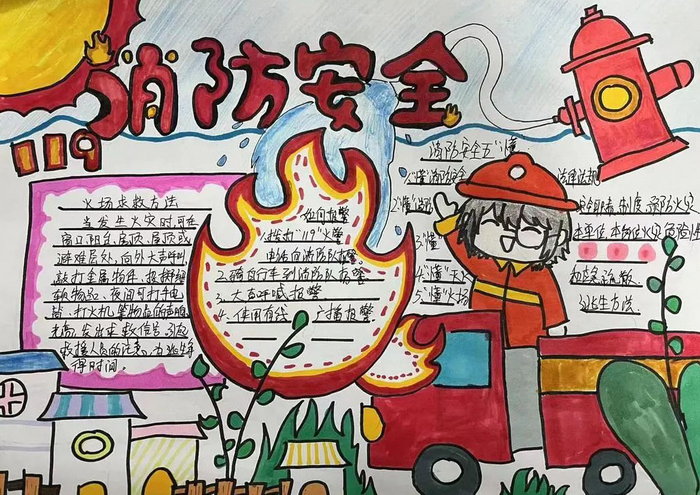 消防安全
119
火场求救方法
当发生火灾时可在
窗口、阳台、房顶、屋顶或
避难层处，向外大声呼叫
敲打金属物件、投掷细
软物品、夜间可打手电
筒、打火机等物品的声响、
光亮，发出求救信号。引起
救援人员的注意，为逃生争
得时间。
如何报警
1、拨打"119"火警
电话向消防队报警
2、骑自行车到消防队报警
3、大声呼喊报警
4、使用有线 广播报警
消防安全五"懂"
1"懂"消防安全 法律法规
制度、预防火灾
本单位、本岗位火灾危险性
4"懂"灭火
5"懂"火场
逃生方法